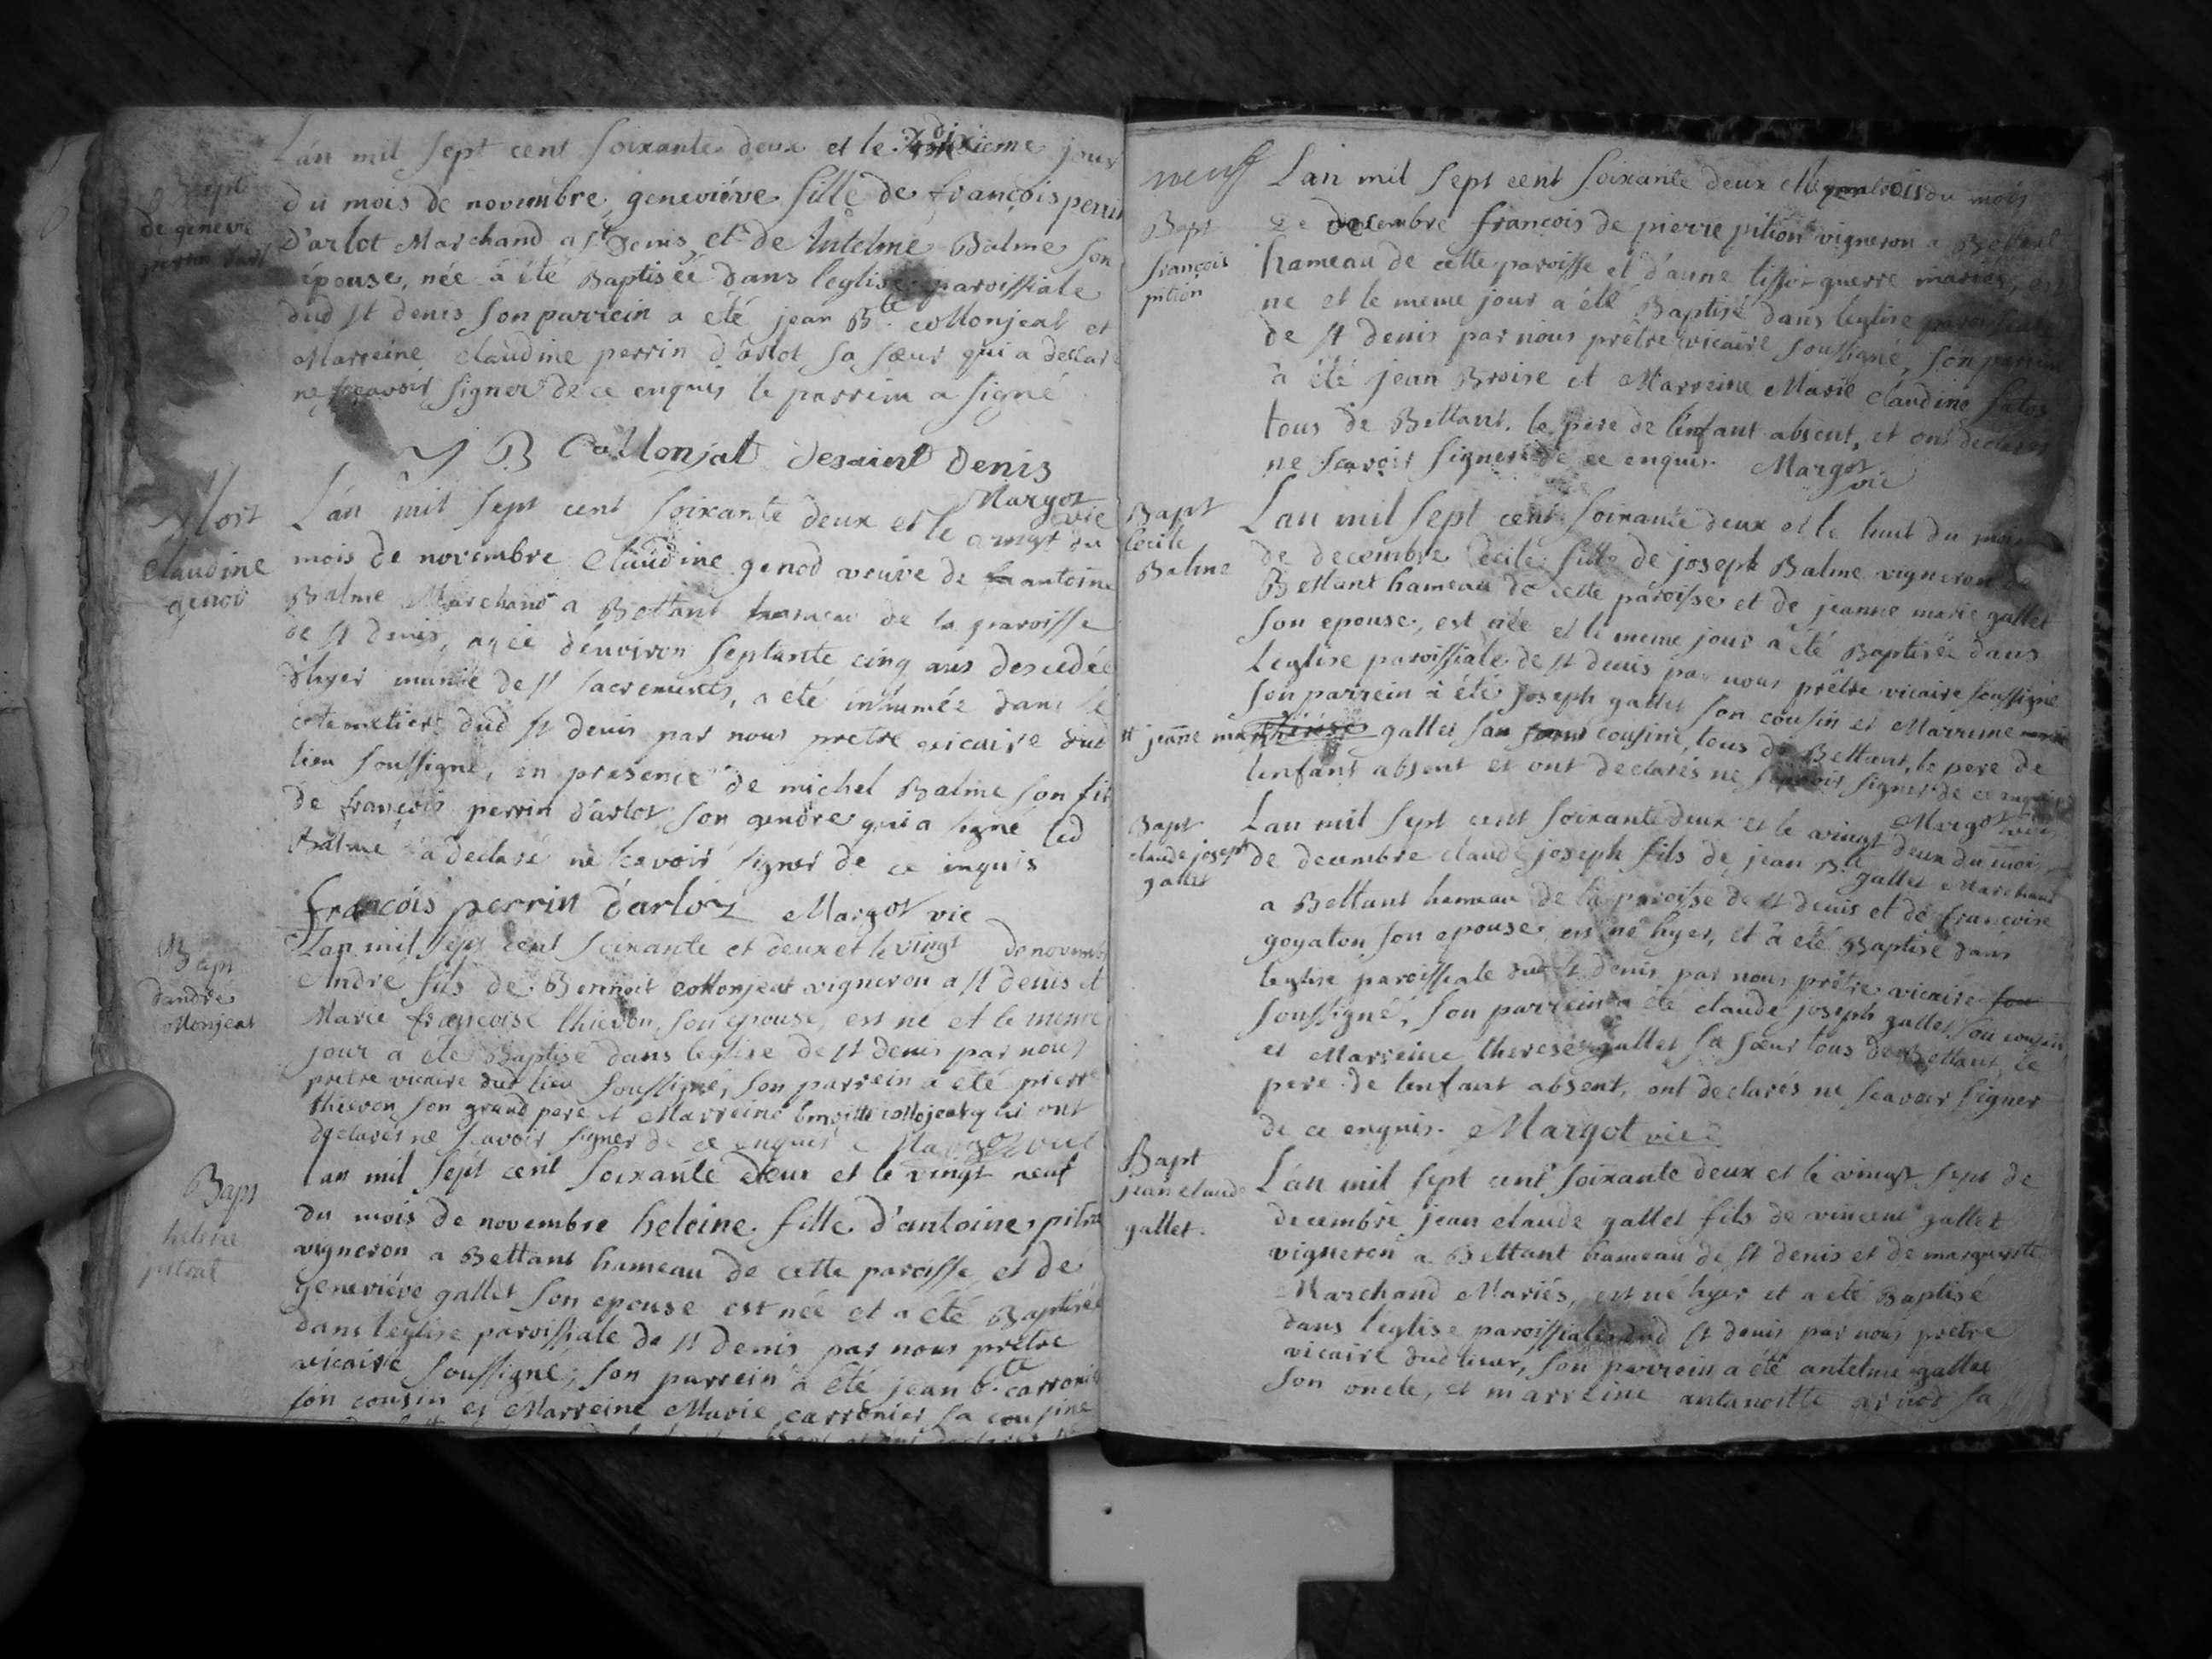 L'an mil sept cent soixante deux et le dixieme jour
du mois de novembre, geneviéve fille de françois perrin
D'arlot Marchand a st Denis, et de Antelme Balme son
épouse, née à été Baptisée dans l'eglise paroissiale
dud st denis son parrein a été jean Bte collonjeat et
Marreine claudine perrin d'arlot sa sœur qui a declaré
ne sçavoir signer de ce enquis le parrein a signé
J B Collonjat desaint Denis
Margot vic
Bapt
de genevie
perrin d'arl
Mort
Claudine
genod
L'an mil sept cent soixante deux et le vingt du
mois de novembre Claudine genod veuve de antoine
Balme Marchand a Bettant hameau de la paroisse
de st Denis, agée d'environ septante cinq ans decedée
d'hyer munie de st sacrements, a été inhumée dans le
cemetiere dud st denis par nous pretre vicaire dud
lieu soussigné, en presence de michel Balme son fils
de françois perrin d'arlot son gendre qui a signé led
Balme a declaré ne sçavoir signer de ce inquis
françois perrin d'arloz Margot vic
Bapt
d'andré
collonjeat
L'an mil sept cent soixante et deux et le vingt de novembre
Andre fils de Bennoit collonjeat vigneron a st denis et
Marie françoise thievon, son epouse, est né et le meme
jour a été Baptisé dans leglise de st denis par nous
pretre vicaire dud lieu soussigné, son parrein a été pierre
thievon son grand pere et Marreine benoitte collojeat qui ont
declarés ne scavoir signer de ce enquis Margot vic
Bapt
helene
pitrat
lan mil sept cent soixante deux et le vingt neuf
du mois de novembre heleine fille d'antoine pitra
vigneron a Bettant hameau de cette paroisse et de
Geneviéve gallet son epouse est née et a été Baptisée
dans l'eglise paroissiale de st Denis par nous prétre
vicaire soussigné; son parrein a été jean bte carronie
son cousin et Marreine Marie carronier sa cousine
neuf
Bapt
françois
pition
L'an mil sept cent soixante deux et le trois du mois
de decembre françois de pierre pition vigneron a Bettant
hameau de cette paroisse et d'anne tissot guerre mariés, est
ne et le meme jour a été Baptisé dans leglise paroissiale
de st denis par nous prêtre vicaire soussigné, son parrein
à été jean Broise et Marreine Marie claudine
tous de Bettant, le pere de l'enfant absent, et ont declarés
ne scavoir signer de ce enquis. Margot vic
Bapt
Cecile
Balme
Lan mil sept cent soixante deux et le huit du mois
de decembre Cecile fille de joseph Balme vigneron de
Bettant hameau de cette paroisse et de jeanne marie gallet
son epouse, est née et le meme jour a été Baptisée dans
Leglise paroissiale de st denis par nous prêtre vicaire soussigné
son parrein à été joseph gallet son cousin et Marreine
jeanne marie gallet sa cousine, tous de Bettant, le pere de
lenfant absent et ont declarés ne scavoir signer de ce enquis
Margot vic
Bapt
claude joseph
gallet
Lan mil sept cent soixante deux et le vingt deux du mois
de decembre claude joseph fils de jean Bte gallet Marchand
a Bettant hameau de la paroisse de st denis et de francoise
goyaton son epouse, est né hyer, et à eté Baptisé dans
leglise paroissiale dud st denis par nous prêtre vicaire
soussigné, son parrein a été claude joseph gallet son cousin
et Marreine therese gallet sa sœur tous de Bettant, le
pere de lenfant absent, ont declarés ne scavoir signer
de ce enquis. Margot vic
Bapt
jean claude
gallet.
L'an mil sept cent soixante deux et le vingt sept de
decembre jean claude gallet fils de vincent gallet
vigneron a Bettant hameau de st denis et de marguerite
Marchand Mariés, est né hyer et a eté Baptisé
dans l'église paroissiale dud st denis par nous prêtre
vicaire dud lieu, son parrein a été antelme gallet
son oncle, et marreine antanoitte arnod sa